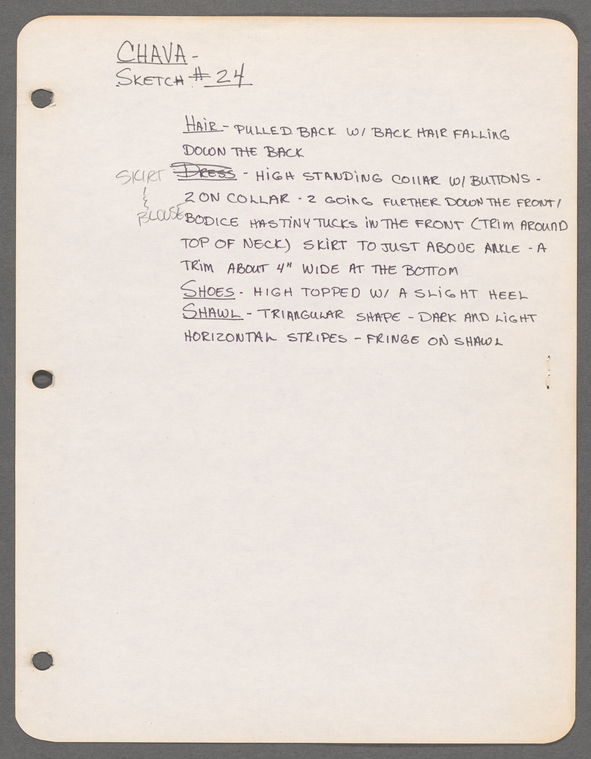 CHAVA -
SKETCH # 24
HAIR - PULLED BACK W/ BACK HAIR FALLING
DOWN THE BACK
SKIRT
&
BLOUSE
DRESS - HIGH STANDING COLLAR W/ BUTTONS -
2 ON COLLAR - 2 GOING FURTHER DOWN THE FRONT /
BODICE HAS TINY TUCKS IN THE FRONT (TRIM AROUND
TOP OF NECK) SKIRT TO JUST ABOVE ANKLE - A
TRIM ABOUT 4" WIDE AT THE BOTTOM
SHOES - HIGH TOPPED W/ A SLIGHT HEEL
SHAWL - TRIANGULAR SHAPE - DARK AND LIGHT
HORIZONTAL STRIPES - FRINGE ON SHAWL